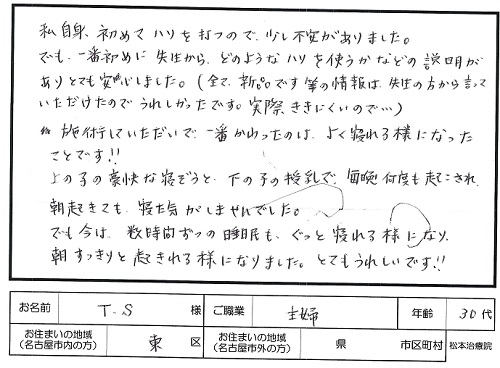 私自身、初めてハリを打つので、少し不安がありました。
でも、一番初めに先生から、どのようなハリを使うかなどの説明が
ありとても安心しました。(全て、新品です等の情報は、先生の方から言って
いただけたのでうれしかったです。実際、ききにくいので…)
施術していただいて、一番かわったのは、よく寝れる様になった
ことです!!
上の子の豪快な寝ぞうと、下の子の授乳で、毎晩何度も起こされ、
朝起きても、寝た気がしませんでした。
でも今は、数時間ずつの睡眠も、ぐっと寝れる様になり、
朝すっきりと起きれる様になりました。とてもうれしいです!!
お名前 T.S 様 ご職業 主婦 年齢 30代
お住まいの地域(名古屋市内の方) 東 区 お住まいの地域(名古屋市外の方) 県 市区町村 松本治療院